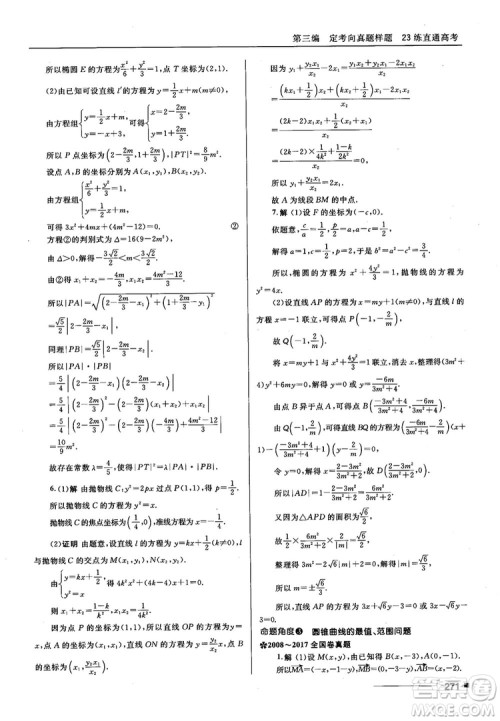 第三编 定考向真题样题 23练直通高考
所以椭圆E的方程为x²/6+y²/3=1,点T坐标为(2,1).
(2)由已知可设直线l′的方程为y=1/2x+m(m≠0),
由方程组{y=1/2x+m, y=-x+3, 可得{x=2-2m/3, y=1+2m/3.
所以P点坐标为(2-2m/3,1+2m/3),|PT|²=8/9m².
设点A,B的坐标分别为A(x₁,y₁),B(x₂,y₂).
由方程组{x²/6+y²/3=1, y=1/2x+m,
可得3x²+4mx+(4m²-12)=0. ②
方程②的判别式为Δ=16(9-2m²),
由Δ>0,解得-3√2/2<m<3√2/2.
由②得x₁+x₂=-4m/3,x₁x₂=(4m²-12)/3.
所以|PA|=√((2-2m/3-x₁)²+(1+2m/3-y₁)²)
=√5/2|2-2m/3-x₁|,
同理|PB|=√5/2|2-2m/3-x₂|.
所以|PA|·|PB|=5/4|(2-2m/3-x₁)(2-2m/3-x₂)|
=5/4|(2-2m/3)²-(2-2m/3)(x₁+x₂)+x₁x₂|
=5/4|(2-2m/3)²-(2-2m/3)(-4m/3)+(4m²-12)/3|
=10/9m².
故存在常数λ=4/5,使得|PT|²=λ|PA|·|PB|.
6.(1)解 由抛物线C:y²=2px过点P(1,1),得p=1/2.
所以抛物线C的方程为y²=x.
抛物线C的焦点坐标为(1/4,0),准线方程为x=-1/4.
(2)证明 由题意,设直线l的方程为y=kx+1/2(k≠0),l与抛物线C的交点为M(x₁,y₁),N(x₂,y₂).
由{y=kx+1/2, y²=x, 得4k²x²+(4k-4)x+1=0,
则x₁+x₂=(1-k)/k²,x₁x₂=1/(4k²).
因为点P的坐标为(1,1),所以直线OP的方程为y=x,点A的坐标为(x₁,x₁).直线ON的方程为y=y₂/x₂x,点B的坐标为(x₁,y₂x₁/x₂).
因为y₁+y₂x₁/x₂-2x₁=(y₁x₂+y₂x₁-2x₁x₂)/x₂
=((kx₁+1/2)x₂+(kx₂+1/2)x₁-2x₁x₂)/x₂
=((2k-2)x₁x₂+1/2(x₂+x₁))/x₂
=((2k-2)×1/(4k²)+(1-k)/(2k²))/x₂
=0,
所以y₁+y₂x₁/x₂=2x₁.
故A为线段BM的中点.
7.解 (1)设F的坐标为(-c,0).
依题意,c/a=1/2,p/2=a,a-c=1/2,
解得a=1,c=1/2,p=2,于是b²=a²-c²=3/4.
所以,椭圆的方程为x²+4y²/3=1,抛物线的方程为y²=4x.
(2)设直线AP的方程为x=my+1(m≠0),与直线l的方程x=-1联立,可得点P(-1,-2/m),
故Q(-1,2/m).
将x=my+1与x²+4y²/3=1联立,消去x,整理得(3m²+4)y²+6my=0,解得y=0或y=-6m/(3m²+4).
由点B异于点A,可得点B((-3m²+4)/(3m²+4),-6m/(3m²+4)).
由Q(-1,2/m),可得直线BQ的方程为(-6m/(3m²+4)-2/m)(x+1)-((-3m²+4)/(3m²+4)+1)(y-2/m)=0,
令y=0,解得x=(2-3m²)/(3m²+2),故D((2-3m²)/(3m²+2),0).
所以|AD|=1-(2-3m²)/(3m²+2)=6m²/(3m²+2).
又因为△APD的面积为√6/2,
故1/2×6m²/(3m²+2)×2/|m|=√6/2,
整理得3m²-2√6|m|+2=0,
解得|m|=√6/3,
所以m=±√6/3.
所以,直线AP的方程为3x+√6y-3=0或3x-√6y-3=0.
命题角度❸ 圆锥曲线的最值、范围问题
✪2008~2017全国卷真题
1.解 (1)设M(x,y),由已知得B(x,-3),A(0,-1).
271